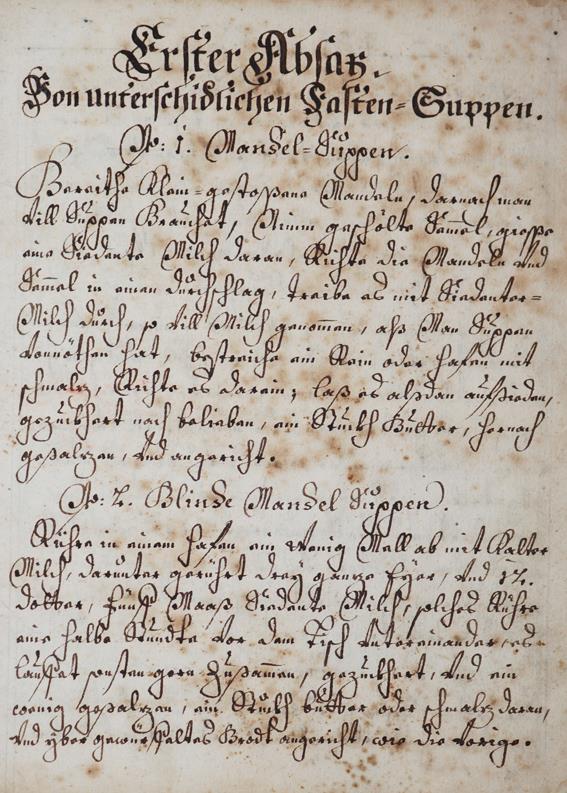 Erster Absatz.
Von unterschidlichen Fasten-Suppen.
No: 1. Mandel-Suppen.
Bereithe Klein-gestoßene Mandeln, darnach man
vill Suppen Brauchet, Nimm geschölte Semel, giesse
eine Siedente Milch daran, Richte die Mandeln und
Semel in einen durchschlag, treibe es mit Siedenter-
Milch durch, so vill Milch genommen, alß Man Suppen
vonnöthen hat, bestreiche ein Rein oder hafen mit
schmalz, Richte es darein; laß es alßdan aufsieden,
gezuckhert nach belieben, ein Stuckh Butter, hernach
gesalzen, und angericht.
No: 2. Blinde Mandel Suppen.
Rühre in einem hafen ein wenig Mell ab mit Kalter
Milch, darunter gerührt drey ganze Eyer, und 12.
dotter, fünf Maaß Siedente Milch, solches Rühre
eine halbe Stundte vor dem Tisch untereinander, es
lauffet sonsten gern zusammen, gezuckhert, und ein
wenig gesalzen, ein Stuckh butter oder schmalz daran,
und yber gewürffeltes Brodt angericht, wie die vorige.